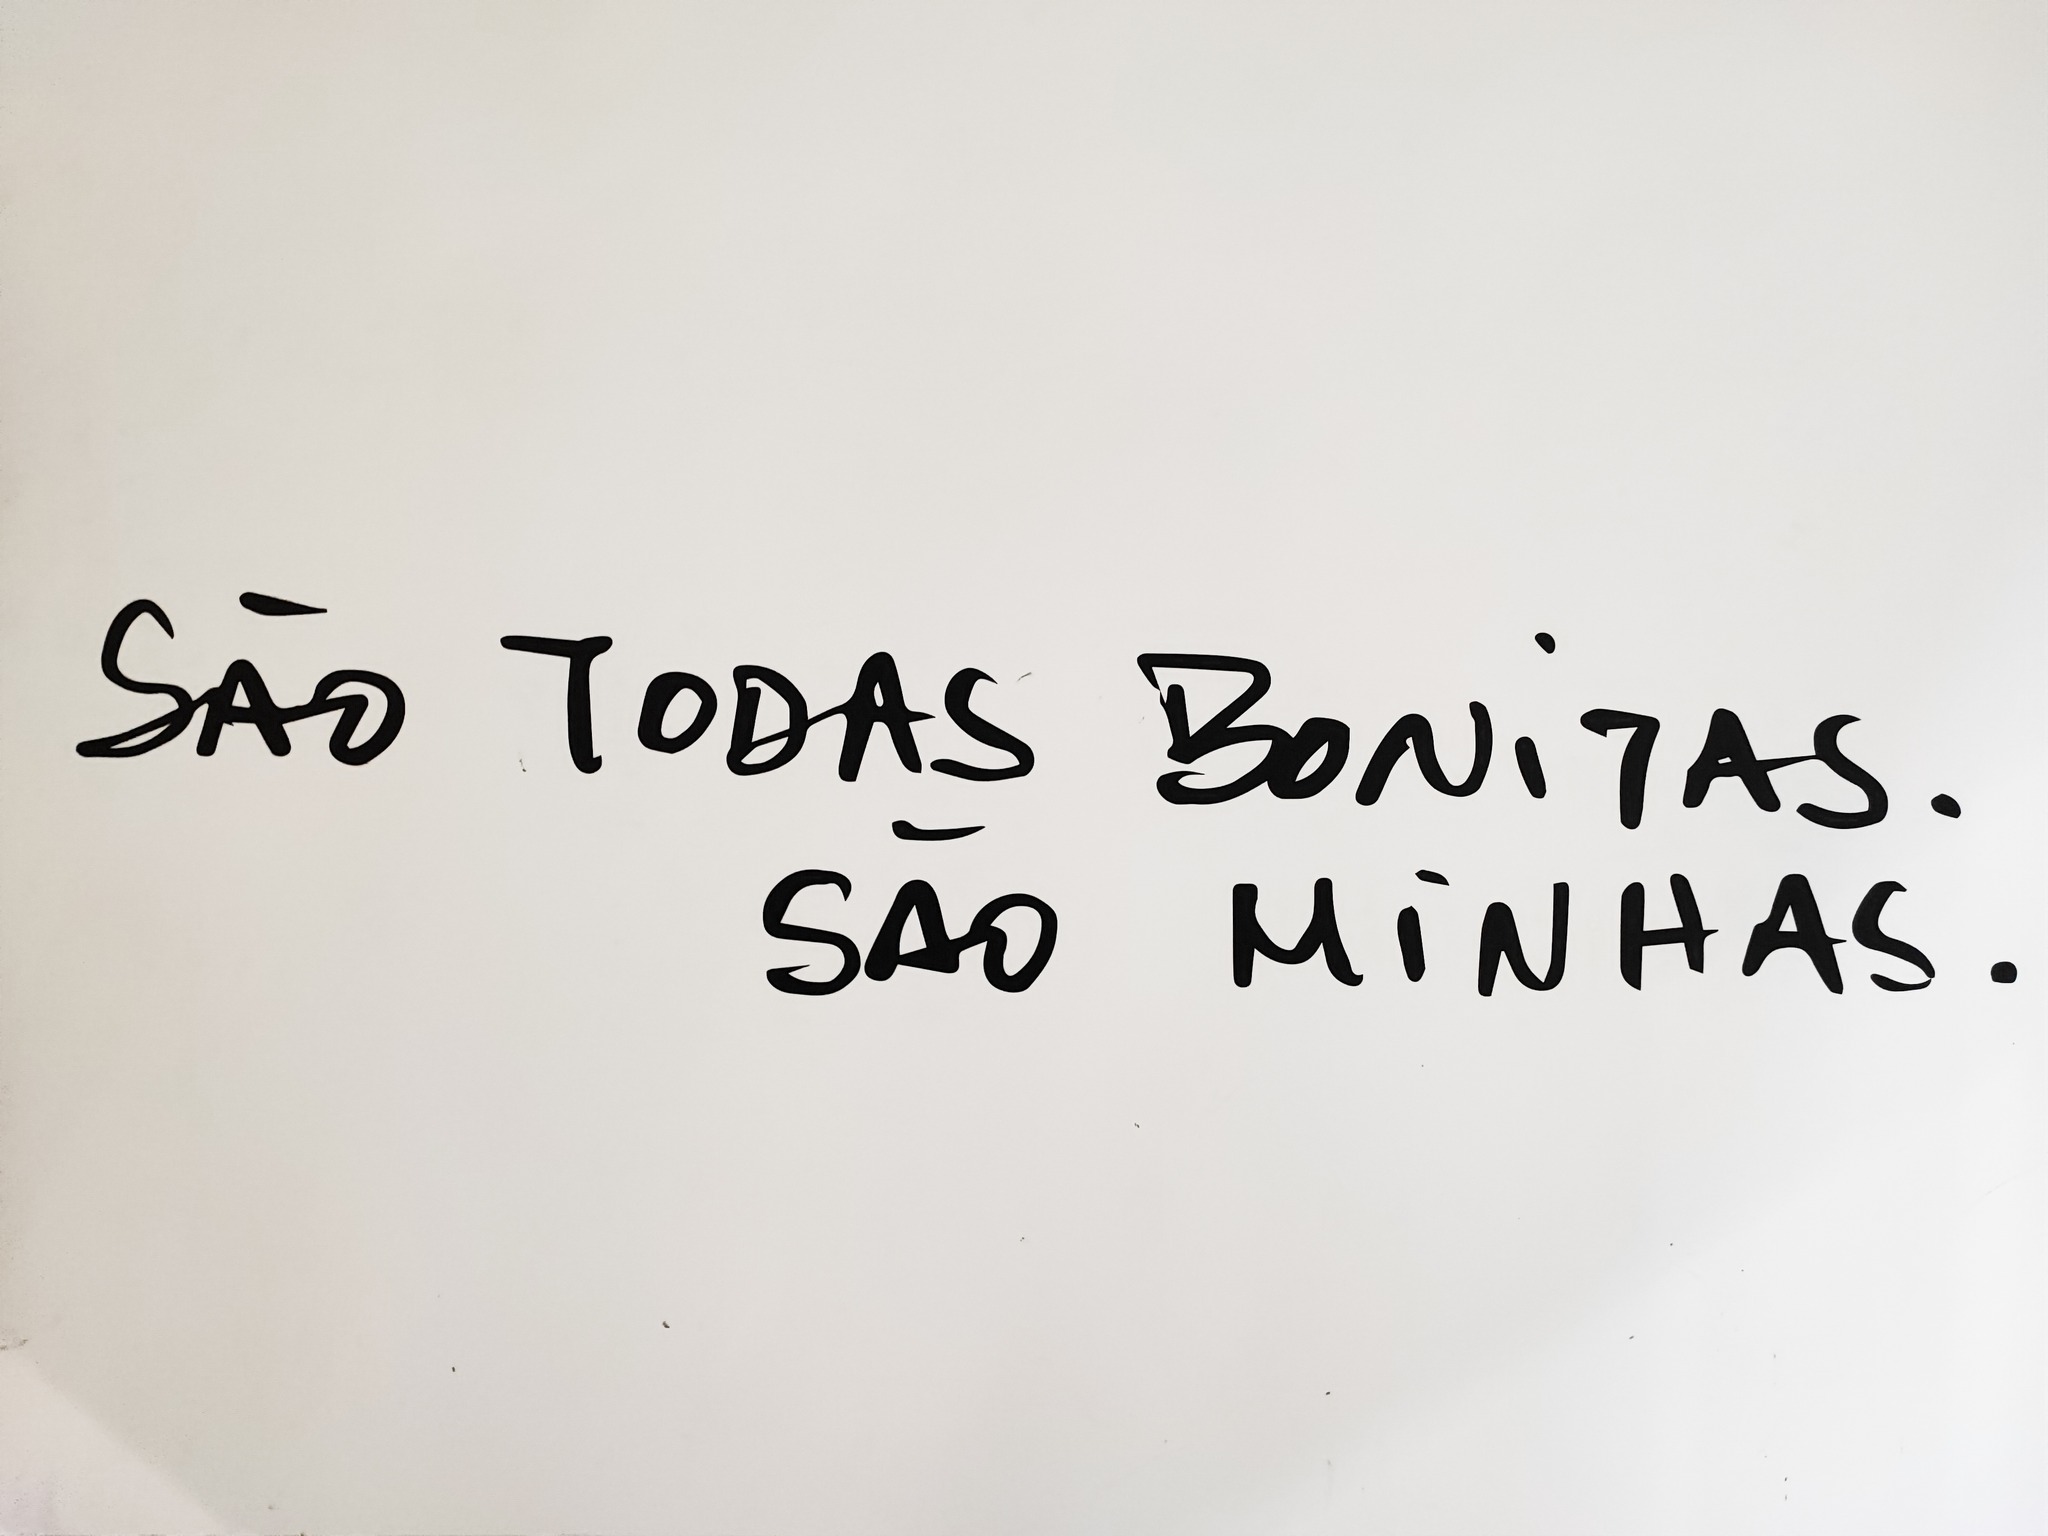 SÃO TODAS BONITAS.
SÃO MINHAS.